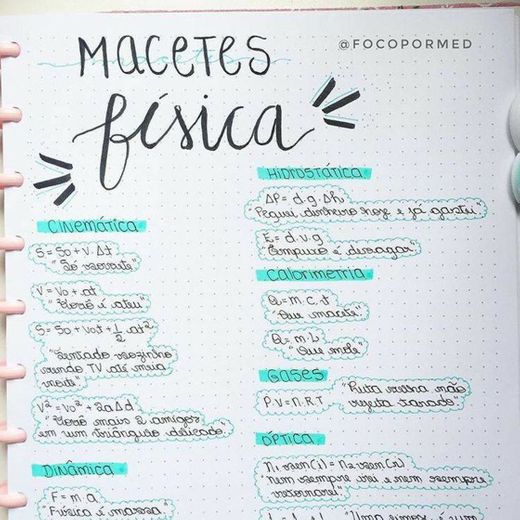 MACETES
@FOCOPORMED
física
CINEMÁTICA
S = S₀ + V. Δt
"Só sorvete"
V = V₀ + at
"Vovô é ateu"
S = S₀ + V₀t + 1/2 at²
"Sentado sozinho
vendo TV até meia
noite"
V² = V₀² + 2aΔd
"Vovô mais 2 amigos
em um triângulo delicado"
DINÂMICA
F = m.a
"Física é massa"
HIDROSTÁTICA
ΔP = d.g.Δh
"Peguei dinheiro hoje e já gastei"
E = d.v.g
"Empuxo é devagar"
CALORIMETRIA
Q = m.c.t
"Que macete"
Q = m.L
"Que mole"
GASES
P.V = n.R.T "Puta velha não
rejeita tarado"
ÓPTICA
n₁ sen(i) = n₂ sen(r)
"Nem sempre irei e nem sempre
retornarei"